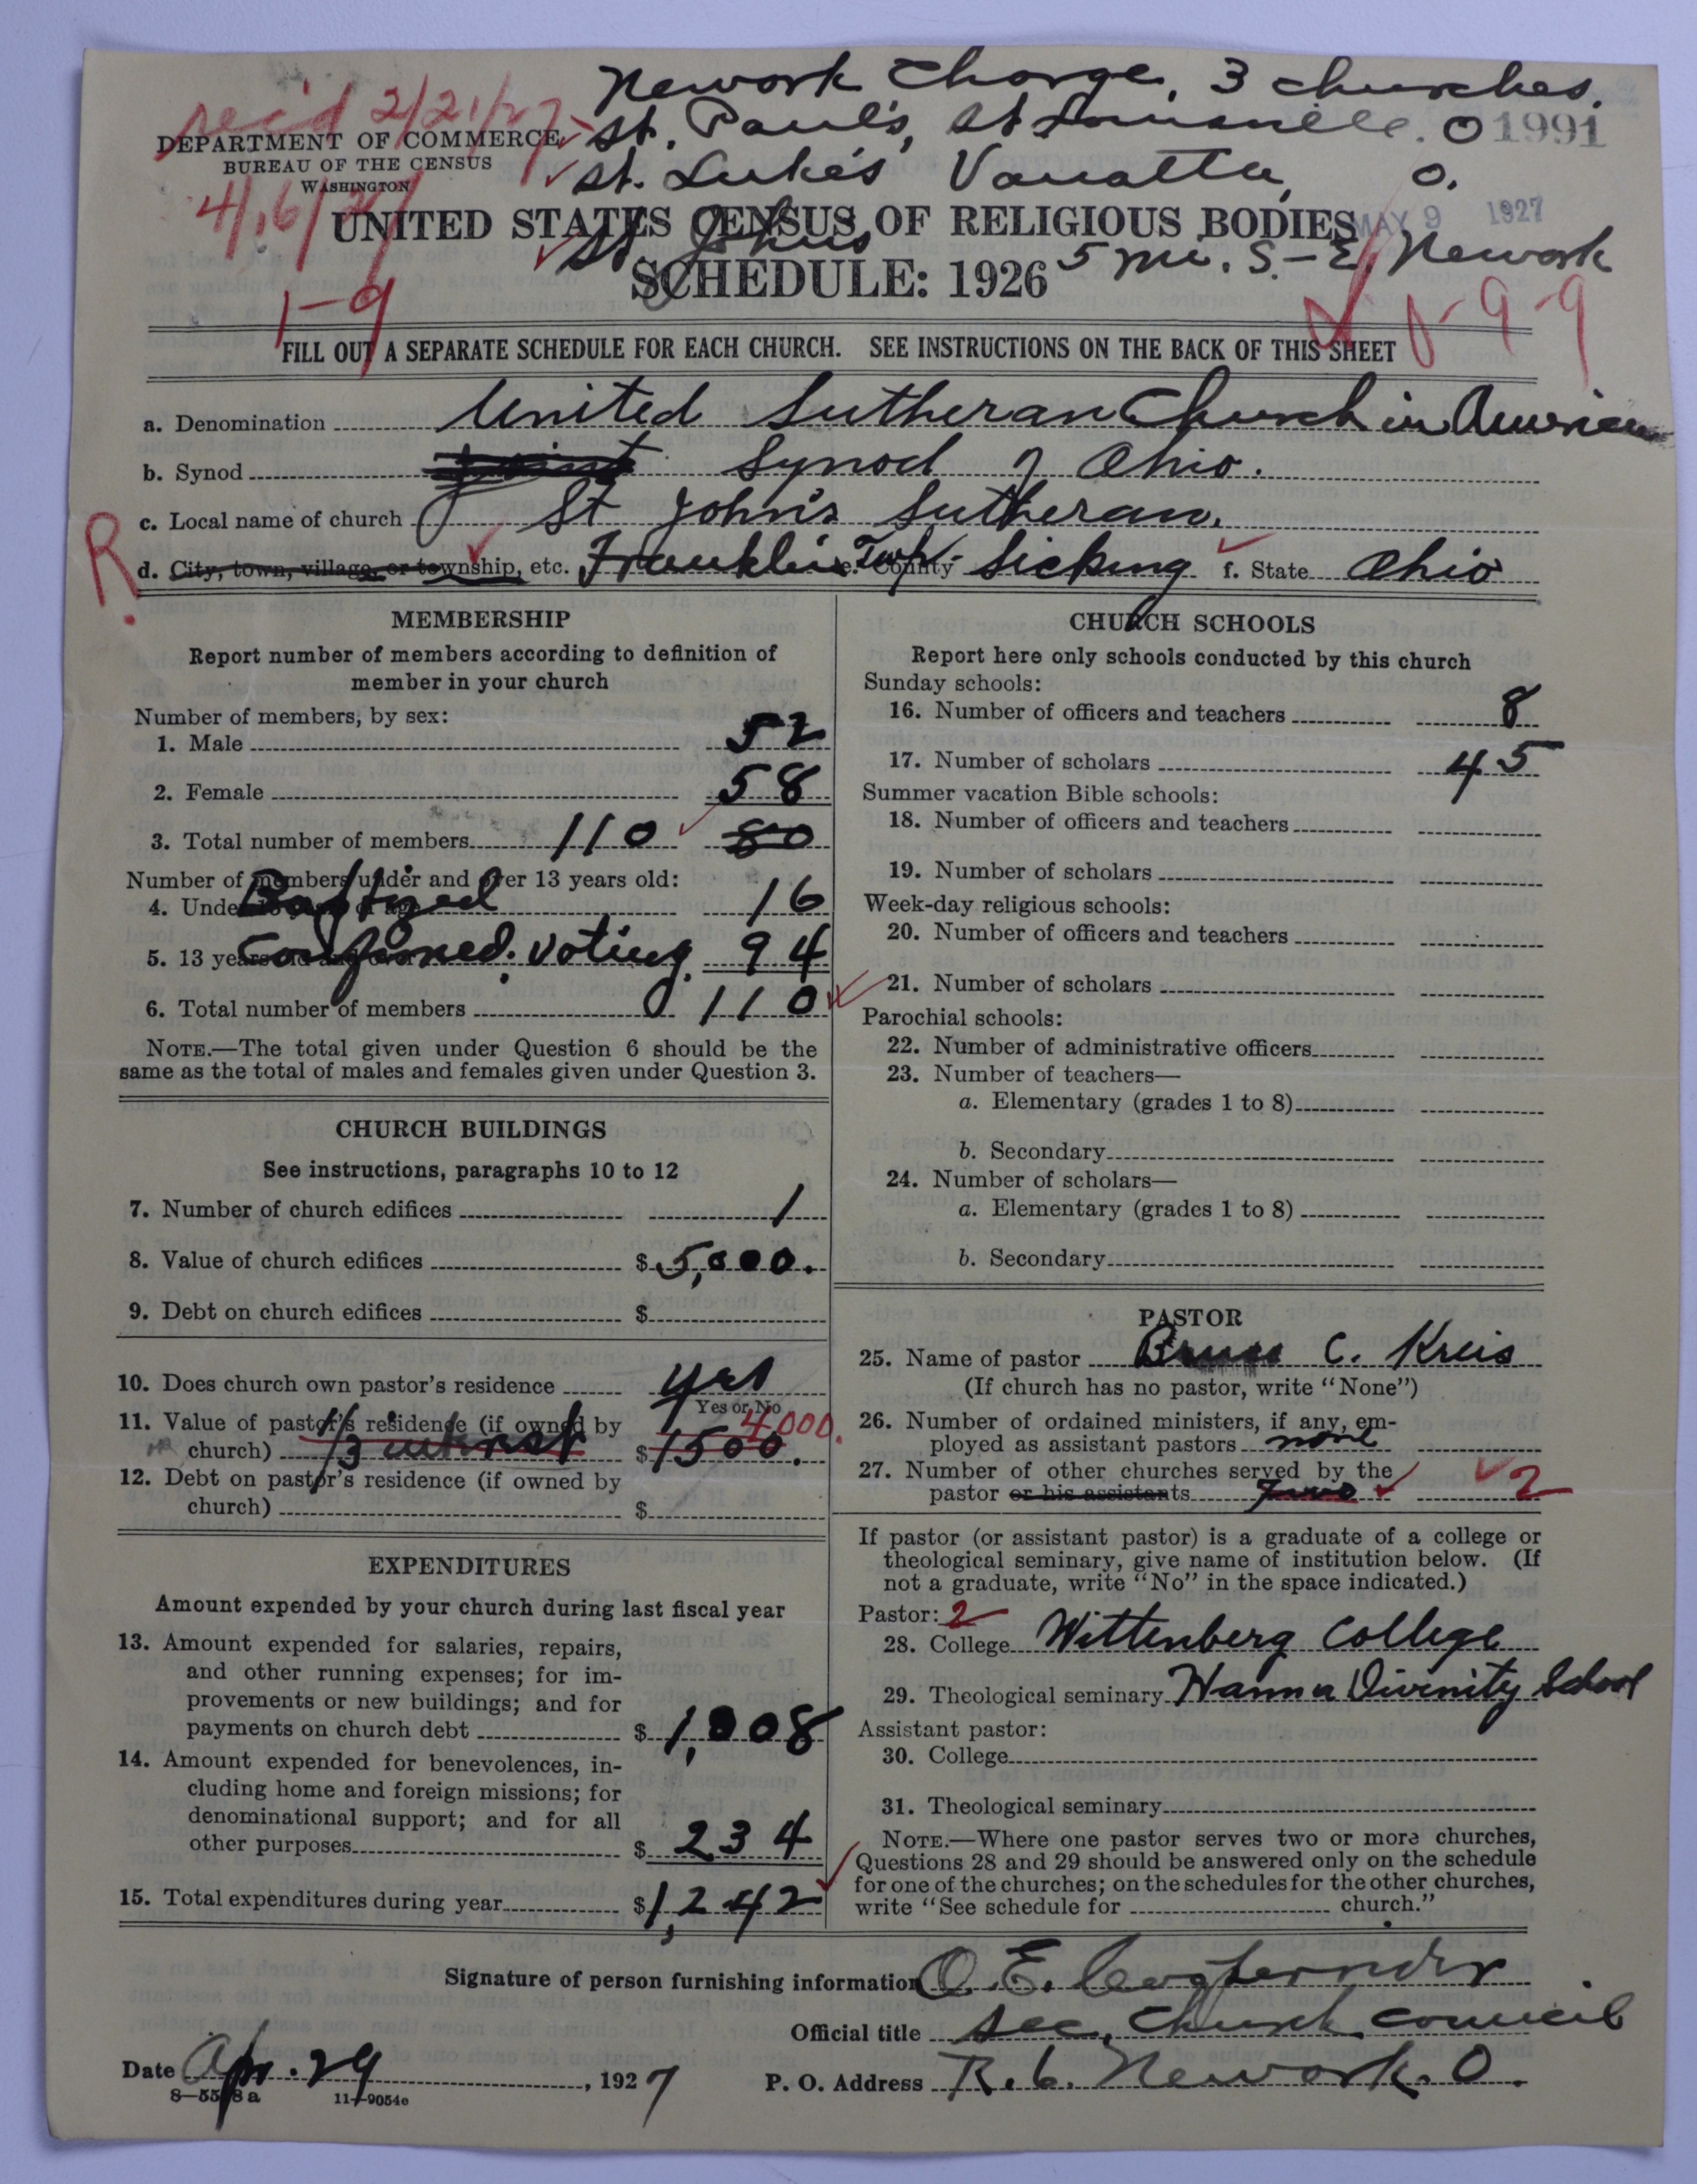 Newark Charge, 3 churches.
rec'd 2/21/27
DEPARTMENT OF COMMERCE
St. Paul's, St Louisville. O
1991
BUREAU OF THE CENSUS
St. Luke's Vanatta, O.
WASHINGTON
4/16/27
UNITED STATES CENSUS OF RELIGIOUS BODIES
MAY 9 1927
St Johns 5 mi. S-E, Newark
SCHEDULE: 1926
1-9
1-9-9
FILL OUT A SEPARATE SCHEDULE FOR EACH CHURCH. SEE INSTRUCTIONS ON THE BACK OF THIS SHEET
a. Denomination United Lutheran Church in America
b. Synod Joint Synod of Ohio.
c. Local name of church St John's Lutheran.
R.
d. City, town, village, or township, etc. Franklin Twp. e. County Licking f. State Ohio
MEMBERSHIP
Report number of members according to definition of
member in your church
Number of members, by sex:
1. Male 52
2. Female 58
3. Total number of members 110 80
Number of members under and over 13 years old:
4. Under 13 years of age Baptized 16
5. 13 years old and over Confirmed. voting 94
6. Total number of members 110
NOTE.—The total given under Question 6 should be the
same as the total of males and females given under Question 3.
CHURCH BUILDINGS
See instructions, paragraphs 10 to 12
7. Number of church edifices 1
8. Value of church edifices $5,000.
9. Debt on church edifices $
10. Does church own pastor's residence yes
Yes or No
11. Value of pastor's residence (if owned by
church) 1/3 interest $1500. 4000.
12. Debt on pastor's residence (if owned by
church) $
EXPENDITURES
Amount expended by your church during last fiscal year
13. Amount expended for salaries, repairs,
and other running expenses; for im-
provements or new buildings; and for
payments on church debt $1,008
14. Amount expended for benevolences, in-
cluding home and foreign missions; for
denominational support; and for all
other purposes $234
15. Total expenditures during year $1,242
CHURCH SCHOOLS
Report here only schools conducted by this church
Sunday schools:
16. Number of officers and teachers 8
17. Number of scholars 45
Summer vacation Bible schools:
18. Number of officers and teachers
19. Number of scholars
Week-day religious schools:
20. Number of officers and teachers
21. Number of scholars
Parochial schools:
22. Number of administrative officers
23. Number of teachers—
a. Elementary (grades 1 to 8)
b. Secondary
24. Number of scholars—
a. Elementary (grades 1 to 8)
b. Secondary
PASTOR
25. Name of pastor C. Kreis
(If church has no pastor, write "None")
26. Number of ordained ministers, if any, em-
ployed as assistant pastors none
27. Number of other churches served by the
pastor or his assistants Two 2
If pastor (or assistant pastor) is a graduate of a college or
theological seminary, give name of institution below. (If
not a graduate, write "No" in the space indicated.)
Pastor: 2
28. College Wittenberg College
29. Theological seminary Hamma Divinity School
Assistant pastor:
30. College
31. Theological seminary
NOTE.—Where one pastor serves two or more churches,
Questions 28 and 29 should be answered only on the schedule
for one of the churches; on the schedules for the other churches,
write "See schedule for church."
Signature of person furnishing information O. E.
Official title Sec. Church council
Date Apr. 29, 1927
P. O. Address R. 6. Newark. O.
8—5578 a 11—9054c